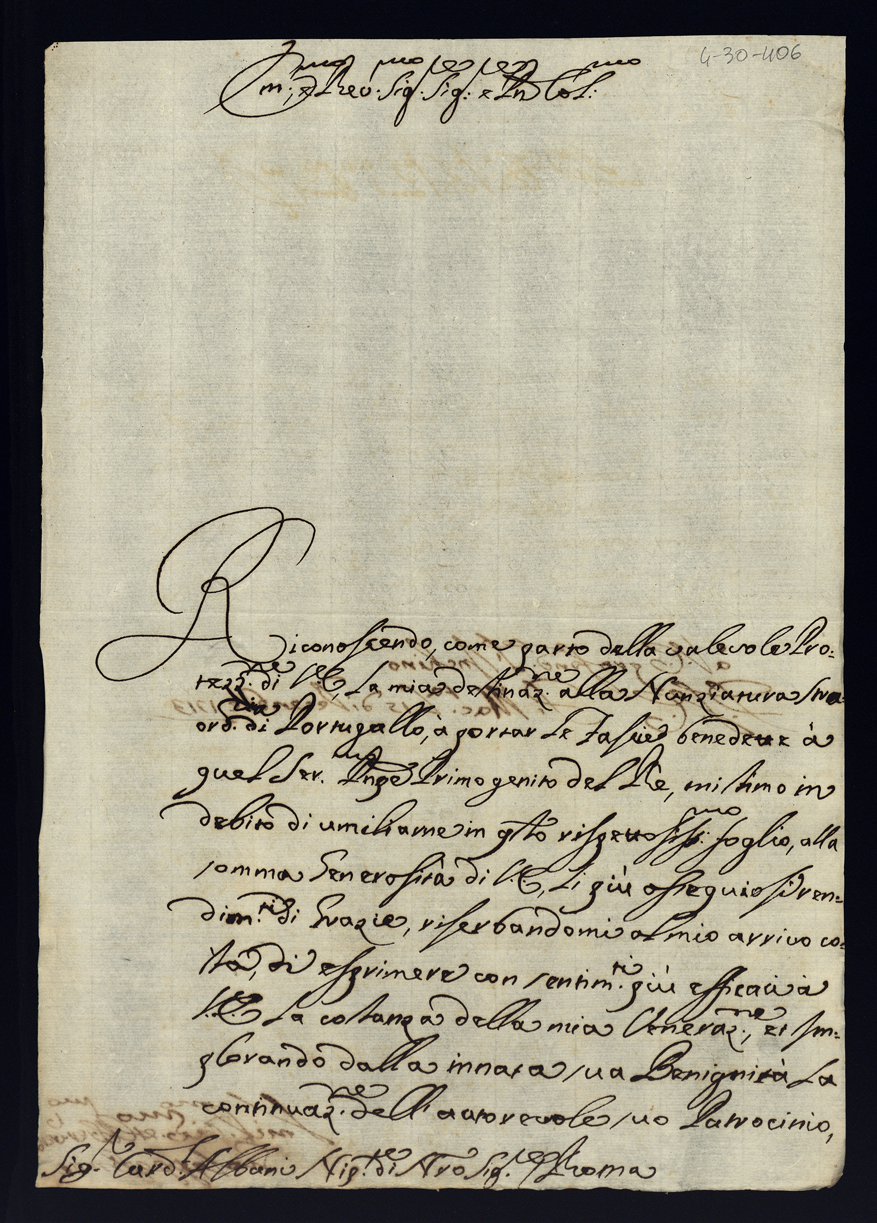 4-30-406
Em:mo e Rev:mo Sig:re Sig:re e Pn Col:mo
Riconoscendo, come parto della valevole Pro-
tezz:ne di V.E. La mia destinaz:ne alla Nunziatura Stra-
ord:ria di Portugallo, à portar Le Fascie benedette à
quel Ser:mo Pnpe Primogenito del Rè, mi stimo in
debito di umiliarne in qsto rispettosiss:mo foglio, alla
somma Generosità di V.E., Li più ossequiosi ren-
dim:ti di Grazie, riserbandomi al mio arrivo co-
stà, di esprimere con sentim:ti più efficaci à
V.E. La costanza della mia Veneraz:ne, et im-
plorando dalla innata sua Benignità La
continuaz:ne dell'autorevole suo Patrocinio,
Sig:r Card:l Albani Nip:te di Nro Sig:re Roma